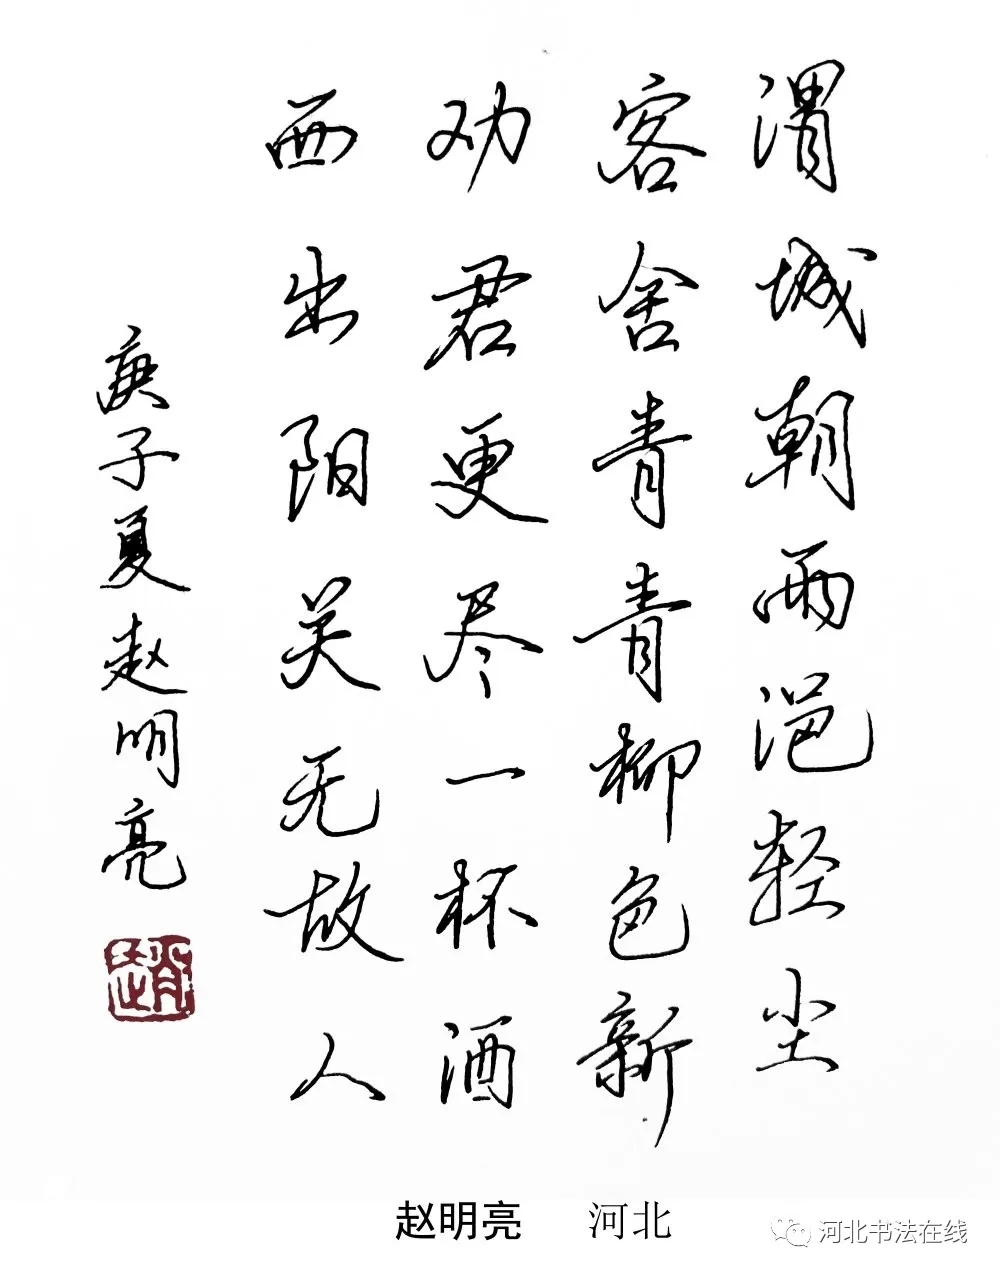 渭城朝雨浥轻尘
客舍青青柳色新
劝君更尽一杯酒
西出阳关无故人
庚子夏赵明亮
趙
赵明亮 河北
河北书法在线